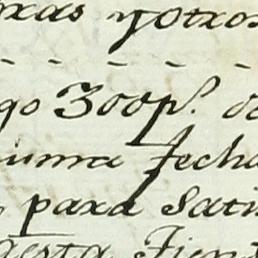 rxas yotros
go 300p.s de
uma fecha
para Sati
aesta Tien